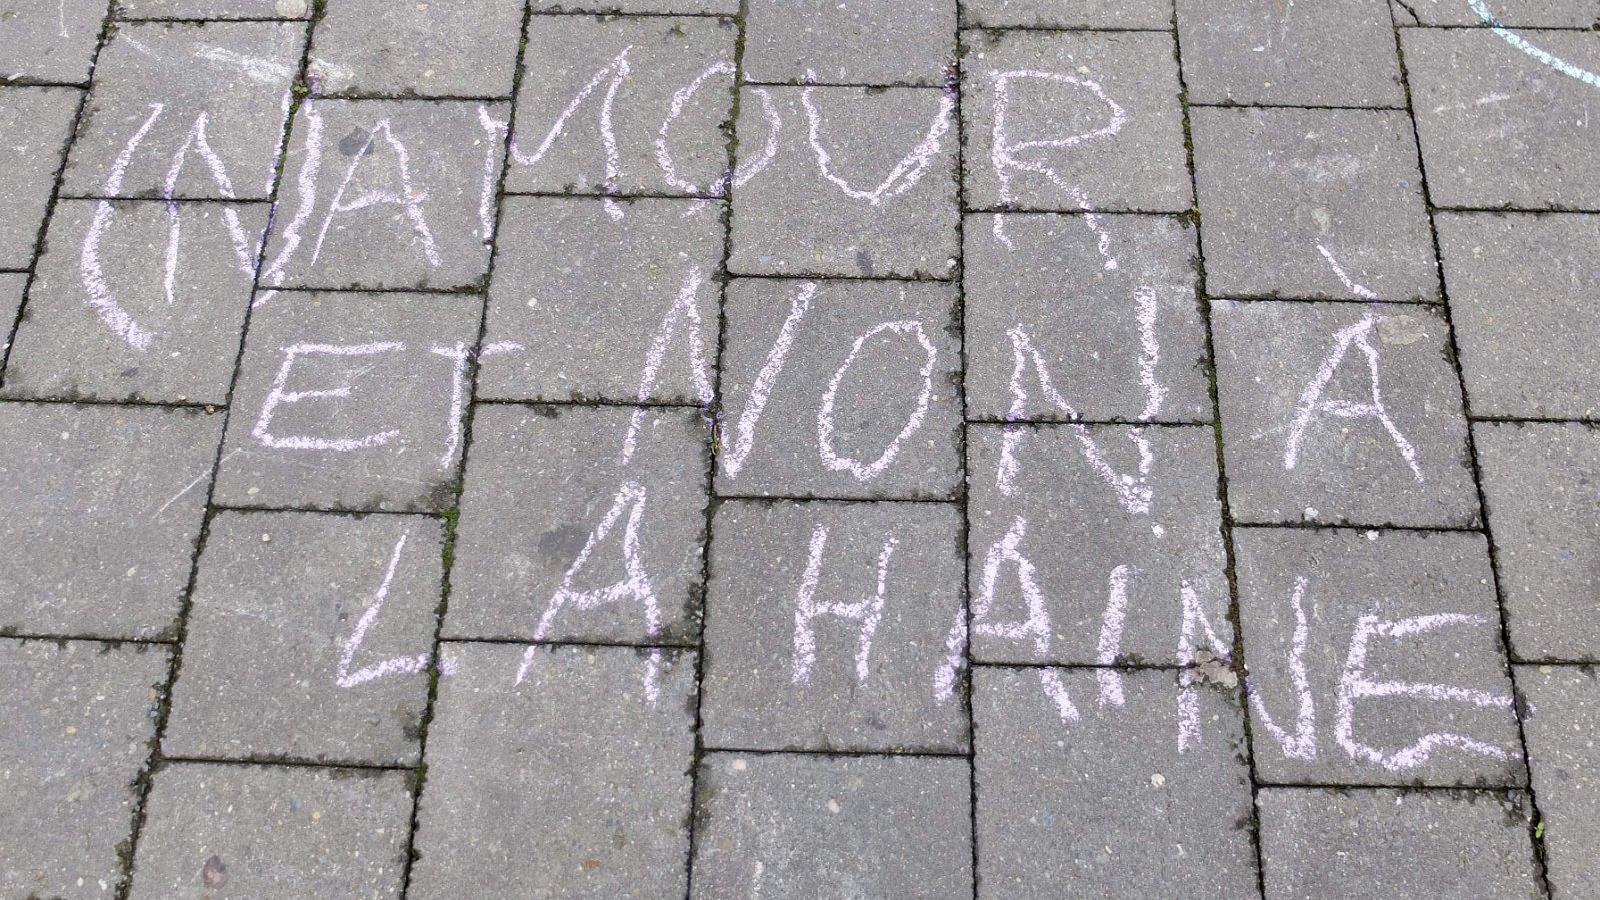 (N)AMOUR
ET NON À
LA HAINE